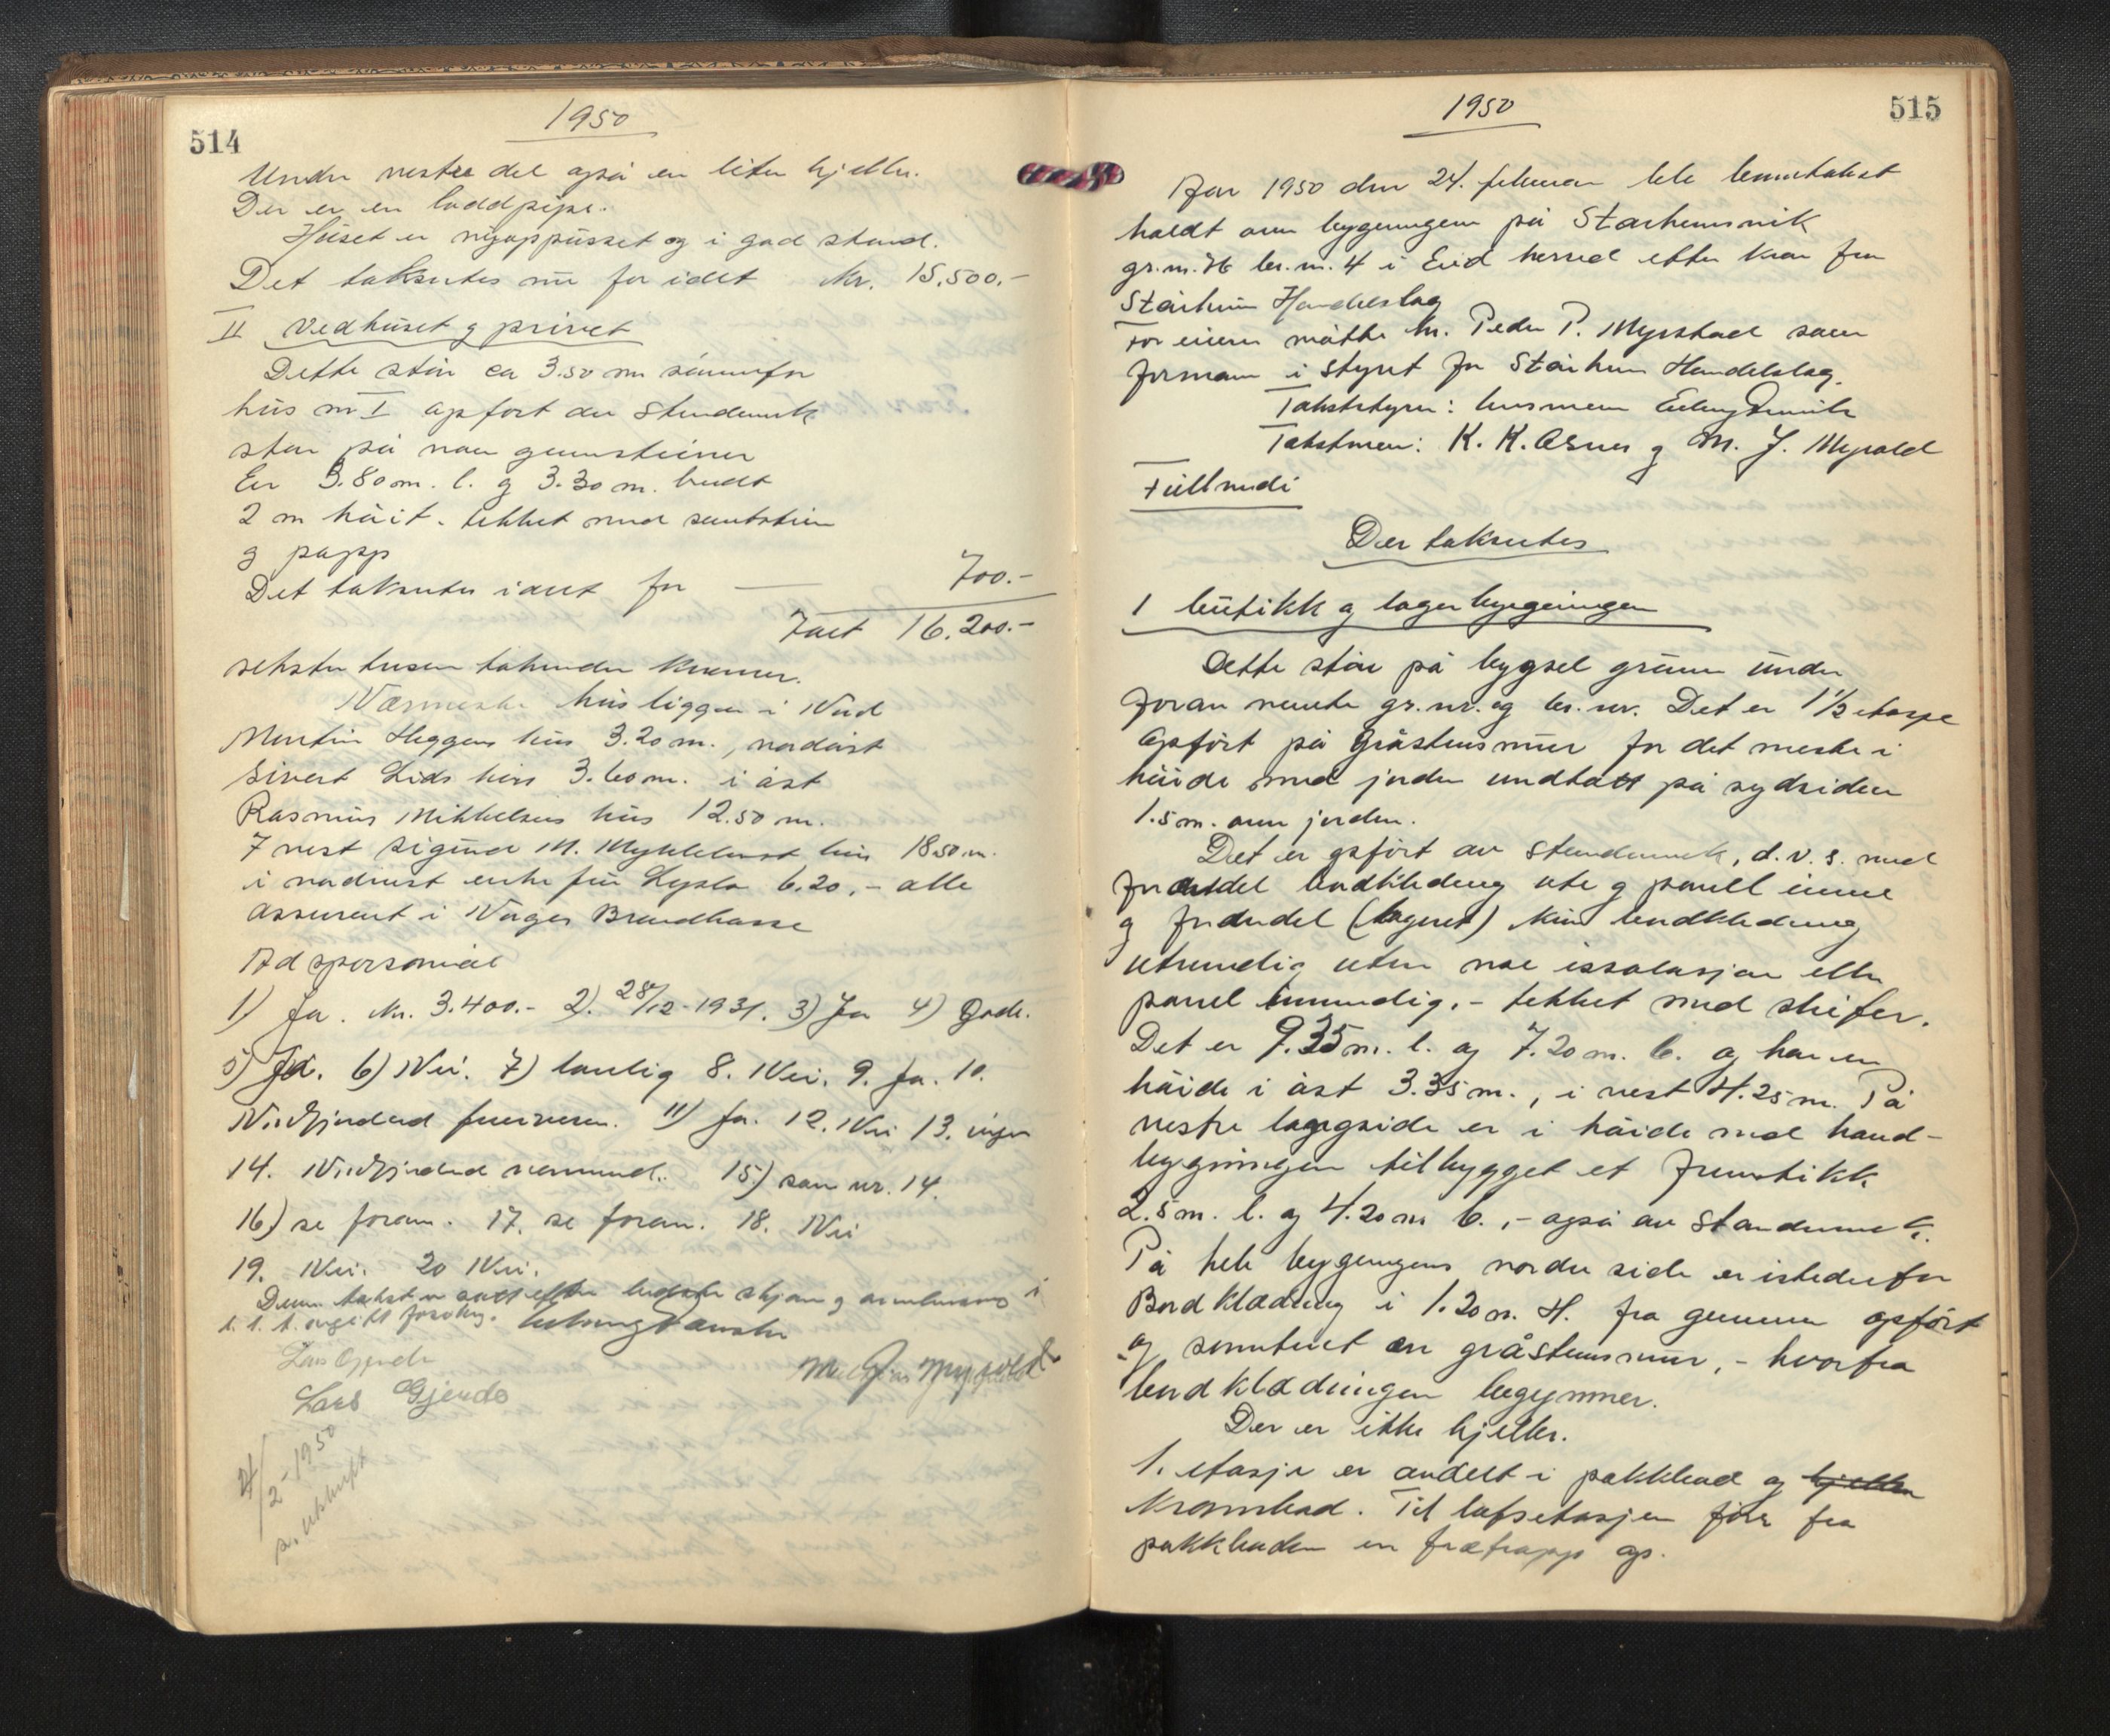 514
1950
Under vestre del også en liten kjeller.
Der er en loddpipe.
Huset er nyoppusset og i god stand.
Det takseres nu for idet Kr. 15,500.-
II Vedhuset og privet
Dette står ca 3.50 m sønnenfor
hus nr I opført av Stenderverk
står på noen grunnsteiner
Er 3.80 m. l. og 3.30 m. bredt
2 m höit. tekket med
og papp
Det takseres i alt for 700.-
I alt 16.200.-
seksten tusen tohundre kroner.
Nærmeste hus ligger i Nord
Martin Heggens hus 3.20 m., nordøst
Sivert Lids hus 3.60 m. i øst
Rasmus Mikkelsens hus 12.50 m.
I vest Sigurd M. Myklebust hus 18.50 m.
i nordvest enke 6.20,- alle
assurert i Norges Brandkasse
Ad spörsmål
1) Ja. Kr. 3.400.- 2). 28/12-1931. 3) Ja 4) Gode.
5) Ja. 6) Nei. 7) vanlig 8. Nei. 9. Ja. 10.
Nordfjordeid 11) Ja. 12. Nei 13. ingen
14. Nordfjordeid 15.) som nr. 14.
16) se foran. 17. se foran. 18. Nei
19. Nei. 20 Nei.
Denne takst er satt etter beste skjön og i
Lars Gjerde
Lars Gjerde
2-1950
1950
515
År 1950 den 24. februar ble branntakst
holdt over bygningen på Stårheimsvik
gr. nr. 76 br. nr. 4 i Eid herred etter krav fra
Stårheim Handelslag
For eieren møtte hr. Peder P. Myrstad som
formann i styret for Stårheim Handelslag.
Takstmen: K. K. Osnes og M. J. Myrold
Fullmedi
Der takseres
1 butikk og lager bygningen
Dette står på bygsel grunn under
foran nevnte gr. nr. og br. nr. Det er 1 1/2 etasje
Opført på Gråstensmur for det meste i
höide med jorden undtatt på sydsiden
1.5 m. over jorden.
Det er opfört av Stenderverk, d.v.s. med
for en del bordkledning ute og panell inne
og for en del (lageret) kun bordkledning
utvendig uten noe issolasjon eller
panel innvendig. - tekket med skifer.
Det er 9.35 m. l. og 7.20 m. b. og har en
höide i öst 3.35 m., i vest 4.25 m. På
vestre langside er i höide med hoved-
bygningen tilbygget et fremstikk
2.5 m. l. og 4.20 m b., - også av Standerverk.
På hele bygningens nordre side er istedenfor
Bordklædning i 1.20 m. H. fra grunnen opført
og sementert en gråstensmur, - hvorfra
bordklædningen begynner.
Der er ikke kjeller.
1. etasje er avdelt i pakkbod og kjeller
Krambod. Til loftsetasjen fører fra
pakkboden en tretrapp op.